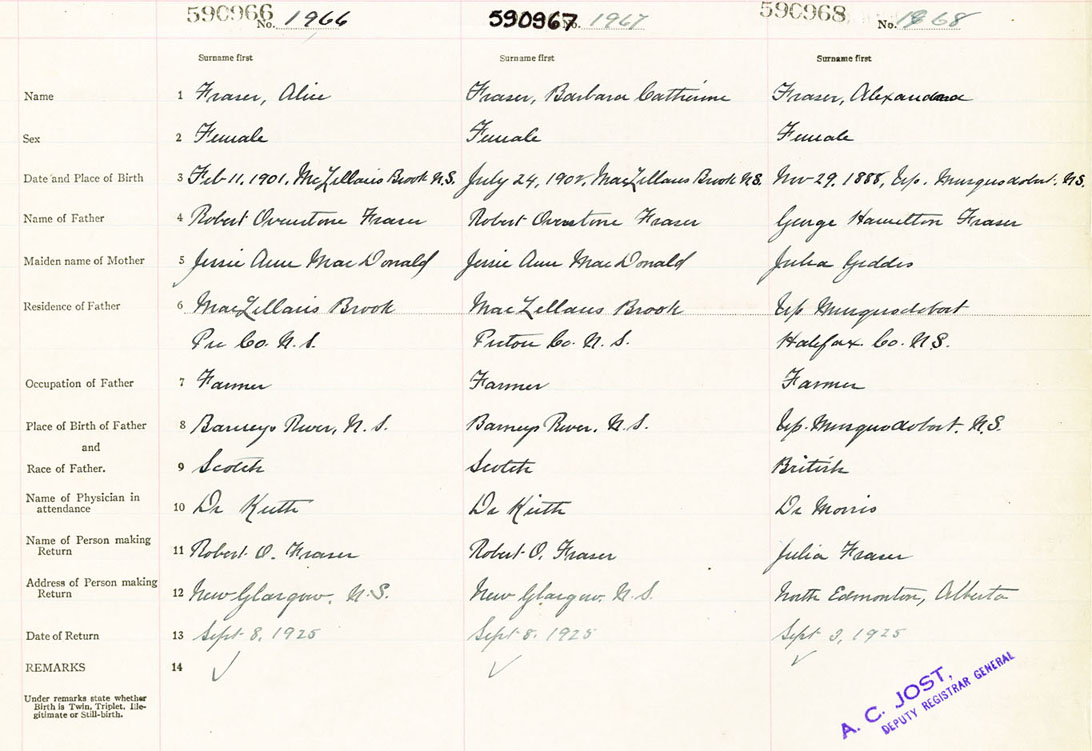 590966 No. 1966 590967 No. 1967 590968 No. 1968
Surname first Surname first Surname first
Name 1 Fraser, Alice Fraser, Barbara Catherine Fraser, Alexandara
Sex 2 Female Female Female
Date and Place of Birth 3 Feb 11, 1901, McLellans Brook N.S. July 24, 1902, MacLellans Brook N.S. Nov 29, 1888, Up. Musquodobort. N.S.
Name of Father 4 Robert Overstone Fraser Robert Overstone Fraser George Hamilton Fraser
Maiden name of Mother 5 Jessie Ann MacDonald Jessie Ann MacDonald Julia Geddes
Residence of Father 6 MacLellans Brook MacLellans Brook Up Musquodobort
Pic Co. N.S. Pictou Co. N.S. Halifax Co. N.S.
Occupation of Father 7 Farmer Farmer Farmer
Place of Birth of Father 8 Barneys River, N.S. Barneys River, N.S. Up. Musquodobort. N.S.
and
Race of Father. 9 Scotch Scotch British
Name of Physician in
attendance 10 Dr Keith Dr Keith Dr Morris
Name of Person making
Return 11 Robert O. Fraser Robert O. Fraser Julia Fraser
Address of Person making
Return 12 New Glasgow, N.S. New Glasgow. N.S. North Edmonton, Alberta
Date of Return 13 Sept 8, 1925 Sept 8, 1925 Sept 3, 1925
REMARKS 14
Under remarks state whether
Birth is Twin, Triplet, Ille-
gitimate or Still-birth.
A. C. JOST,
DEPUTY REGISTRAR GENERAL